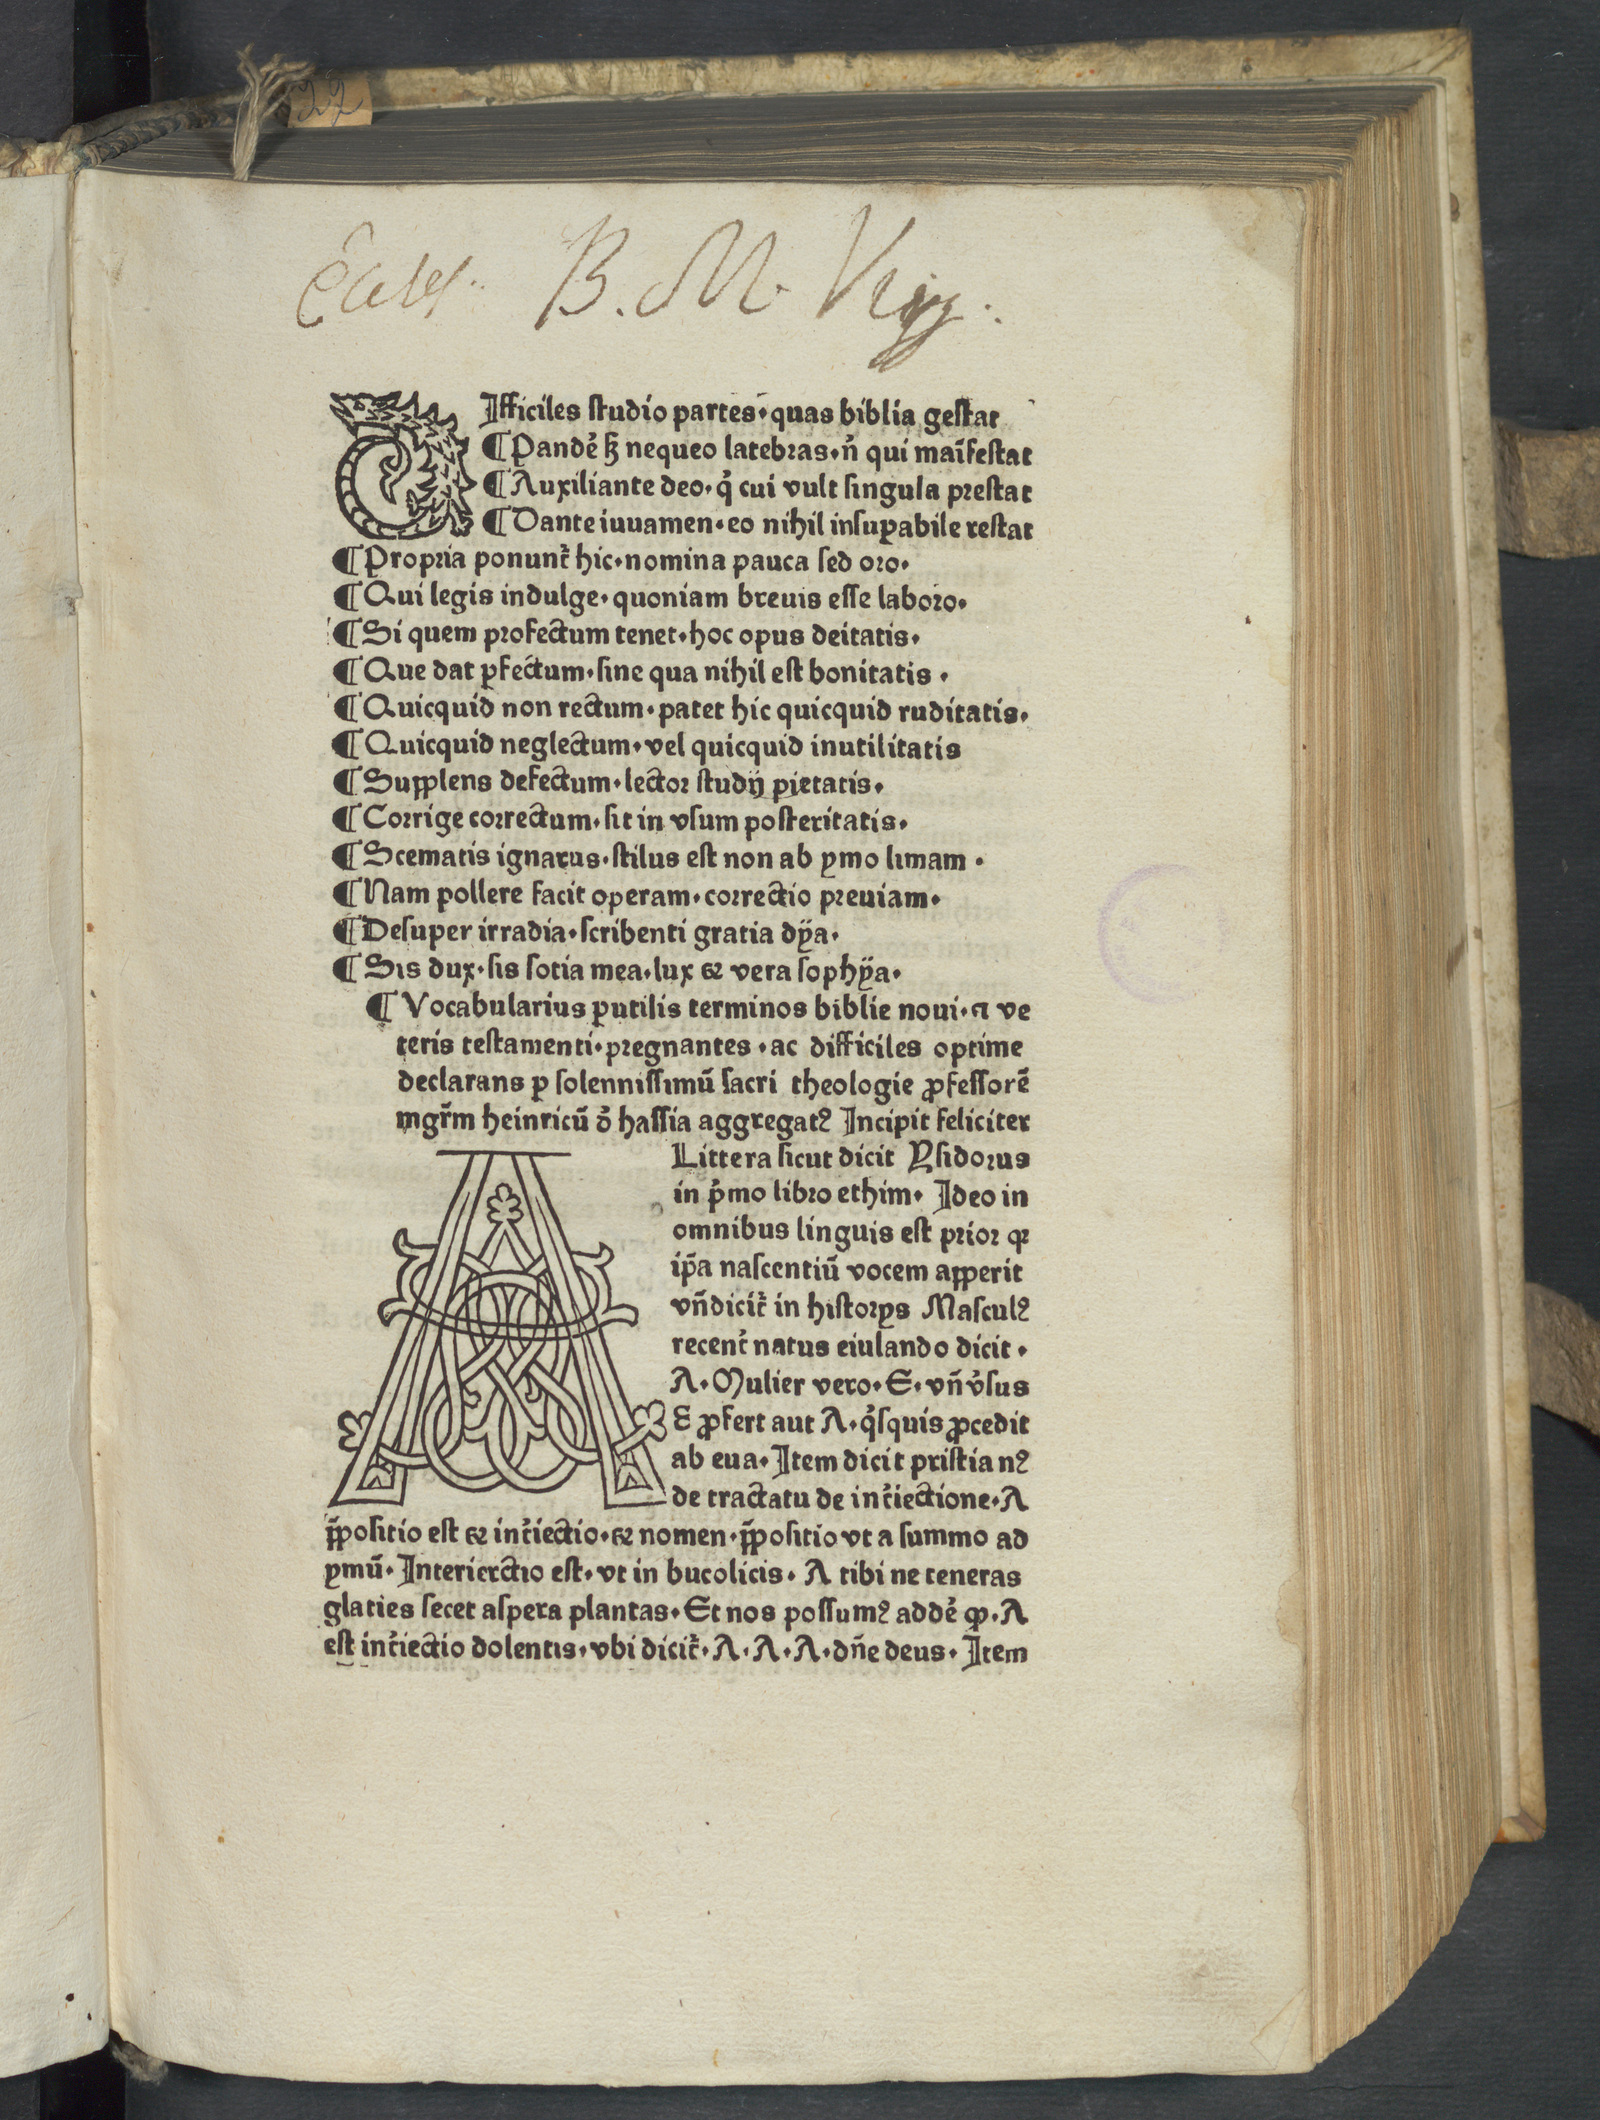 B. M. V
DIfficiles studio partes·quas biblia gestat
¶ Pandẽ sꝫ nequeo latebras·ñ qui maĩfestat
¶ Auxiliante deo·q̉ cui vult singula prestat
¶ Dante iuuamen·eo nihil insuꝑabile restat
¶ Propria ponunt᷑ hic·nomina pauca sed oro·
¶ Qui legis indulge·quoniam breuis esse laboro·
¶ Si quem profectum tenet·hoc opus deitatis·
¶ Que dat ꝑfectum·sine qua nihil est bonitatis·
¶ Quicquid non rectum·patet hic quicquid ruditatis·
¶ Quicquid neglectum·vel quicquid inutilitatis
¶ Supplens defectum·lector studij pietatis·
¶ Corrige correctum·sit in vsum posteritatis·
¶ Scematis ignarus·stilus est non ab ymo limam·
¶ Nam pollere facit operam·correctio preuiam·
¶ Desuper irradia·scribenti gratia dÿa·
¶ Sis dux·sis sotia mea·lux ⁊ vera sophÿa·
¶ Vocabularius ꝑutilis terminos biblie noui·⁊ ve
teris testamenti·pregnantes·ac difficiles optime
declarans ꝑ solennissimũ sacri theologie ꝓfessorẽ
mgr̃m heinricũ d̉ hassia aggregatꝰ Incipit feliciter
A Littera sicut dicit Ysidorus
in p̉mo libro ethim· Ideo in
omnibus linguis est prior qꝛ
ip̃a nascentiũ vocem apperit
vñdicit᷑ in historys Masculꝰ
recent᷑ natus eiulando dicit·
A·Mulier vero·E·vñ v̉sus
E ꝓfert aut A·q̉squis ꝓcedit
ab eua·Item dicit pristianꝰ
de tractatu de int᷑iectione·A
p̃positio est ⁊ int᷑iectio·⁊ nomen·p̃positio vt a summo ad
ymũ·Interierctio est·vt in bucolicis·A tibi ne teneras
glaties secet aspera plantas·Et nos possumꝰ addẽ ꝙ·A
est int᷑iectio dolentis·vbi dicit᷑·A·A·A·dñe deus·Item